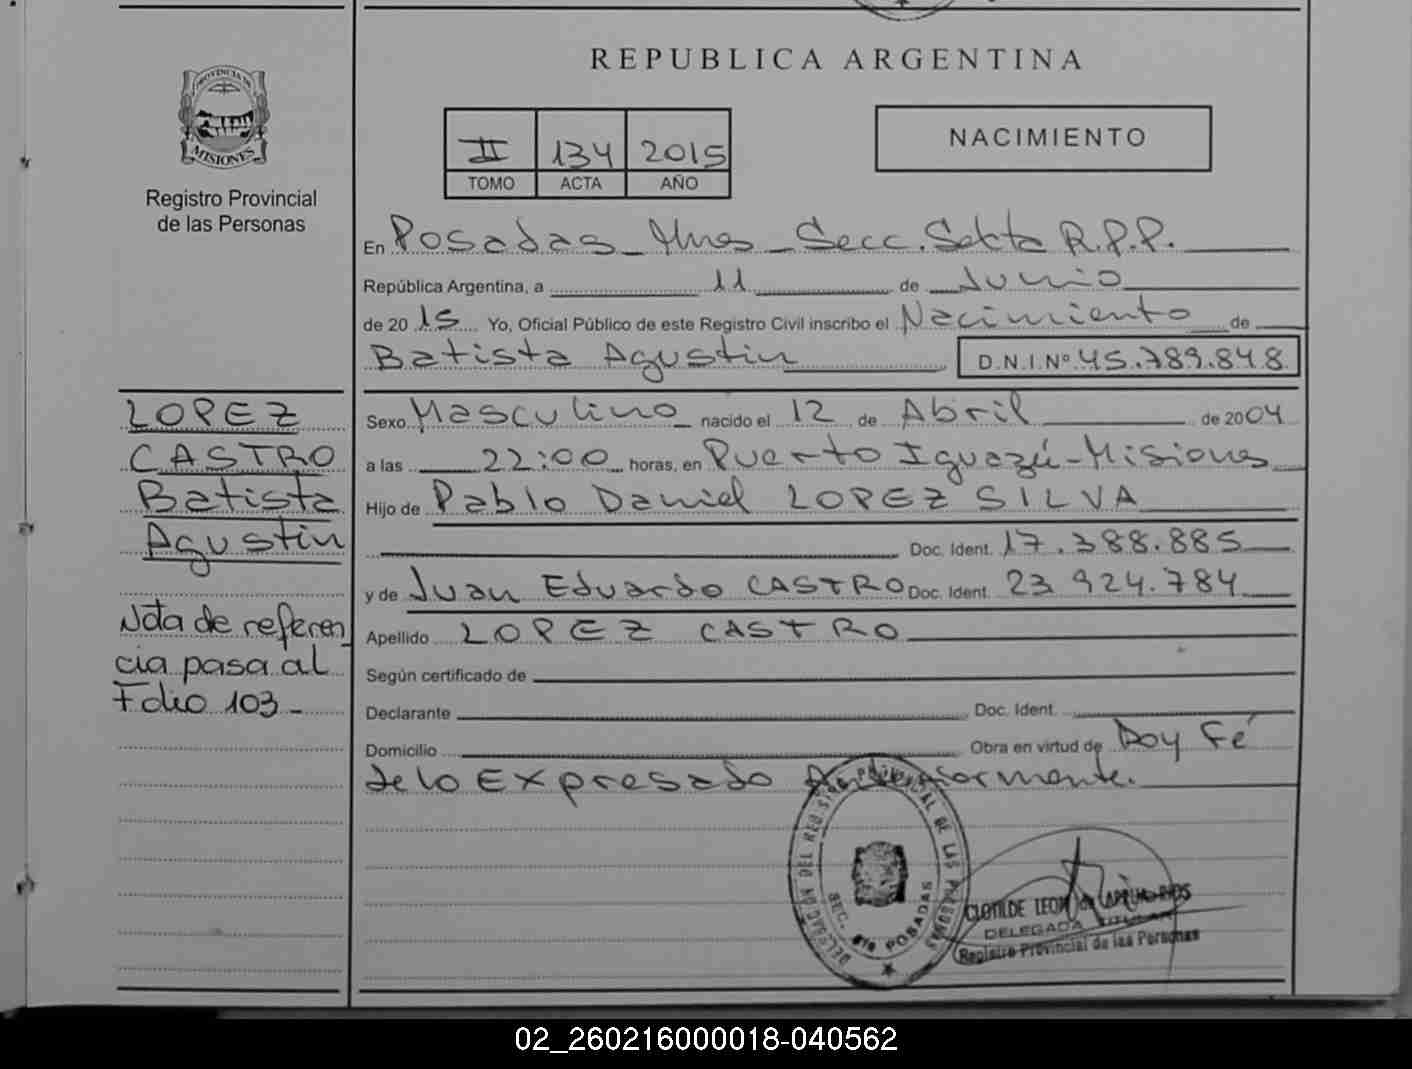 REPUBLICA ARGENTINA
PROVINCIA DE
MISIONES
Registro Provincial
de las Personas
II 134 2015
TOMO ACTA AÑO
NACIMIENTO
En Posadas - Mnes - Secc. Sexta R.P.P.
República Argentina, a 11 de Junio
de 2015 Yo, Oficial Público de este Registro Civil inscribo el Nacimiento de
Batista Agustin D.N.I.Nº 45.789.848
LOPEZ
CASTRO
Batista
Agustin
Nota de referen
cia pasa al
Folio 103 -
Sexo Masculino nacido el 12 de Abril de 2004
a las 22:00 horas, en Puerto Iguazú - Misiones
Hijo de Pablo Daniel LOPEZ SILVA
Doc. Ident. 17.388.885
y de Juan Eduardo CASTRO Doc. Ident. 23 924.784
Apellido LOPEZ CASTRO
Según certificado de
Declarante Doc. Ident.
Domicilio Obra en virtud de Doy Fé
de lo Expresado Anteriormente.
DELEGACION DEL REGISTRO PROVINCIAL DE LAS PERSONAS
SEC. 6ta POSADAS
CLOTILDE LEON de
DELEGADA TITULAR
Registro Provincial de las Personas
02_260216000018-040562